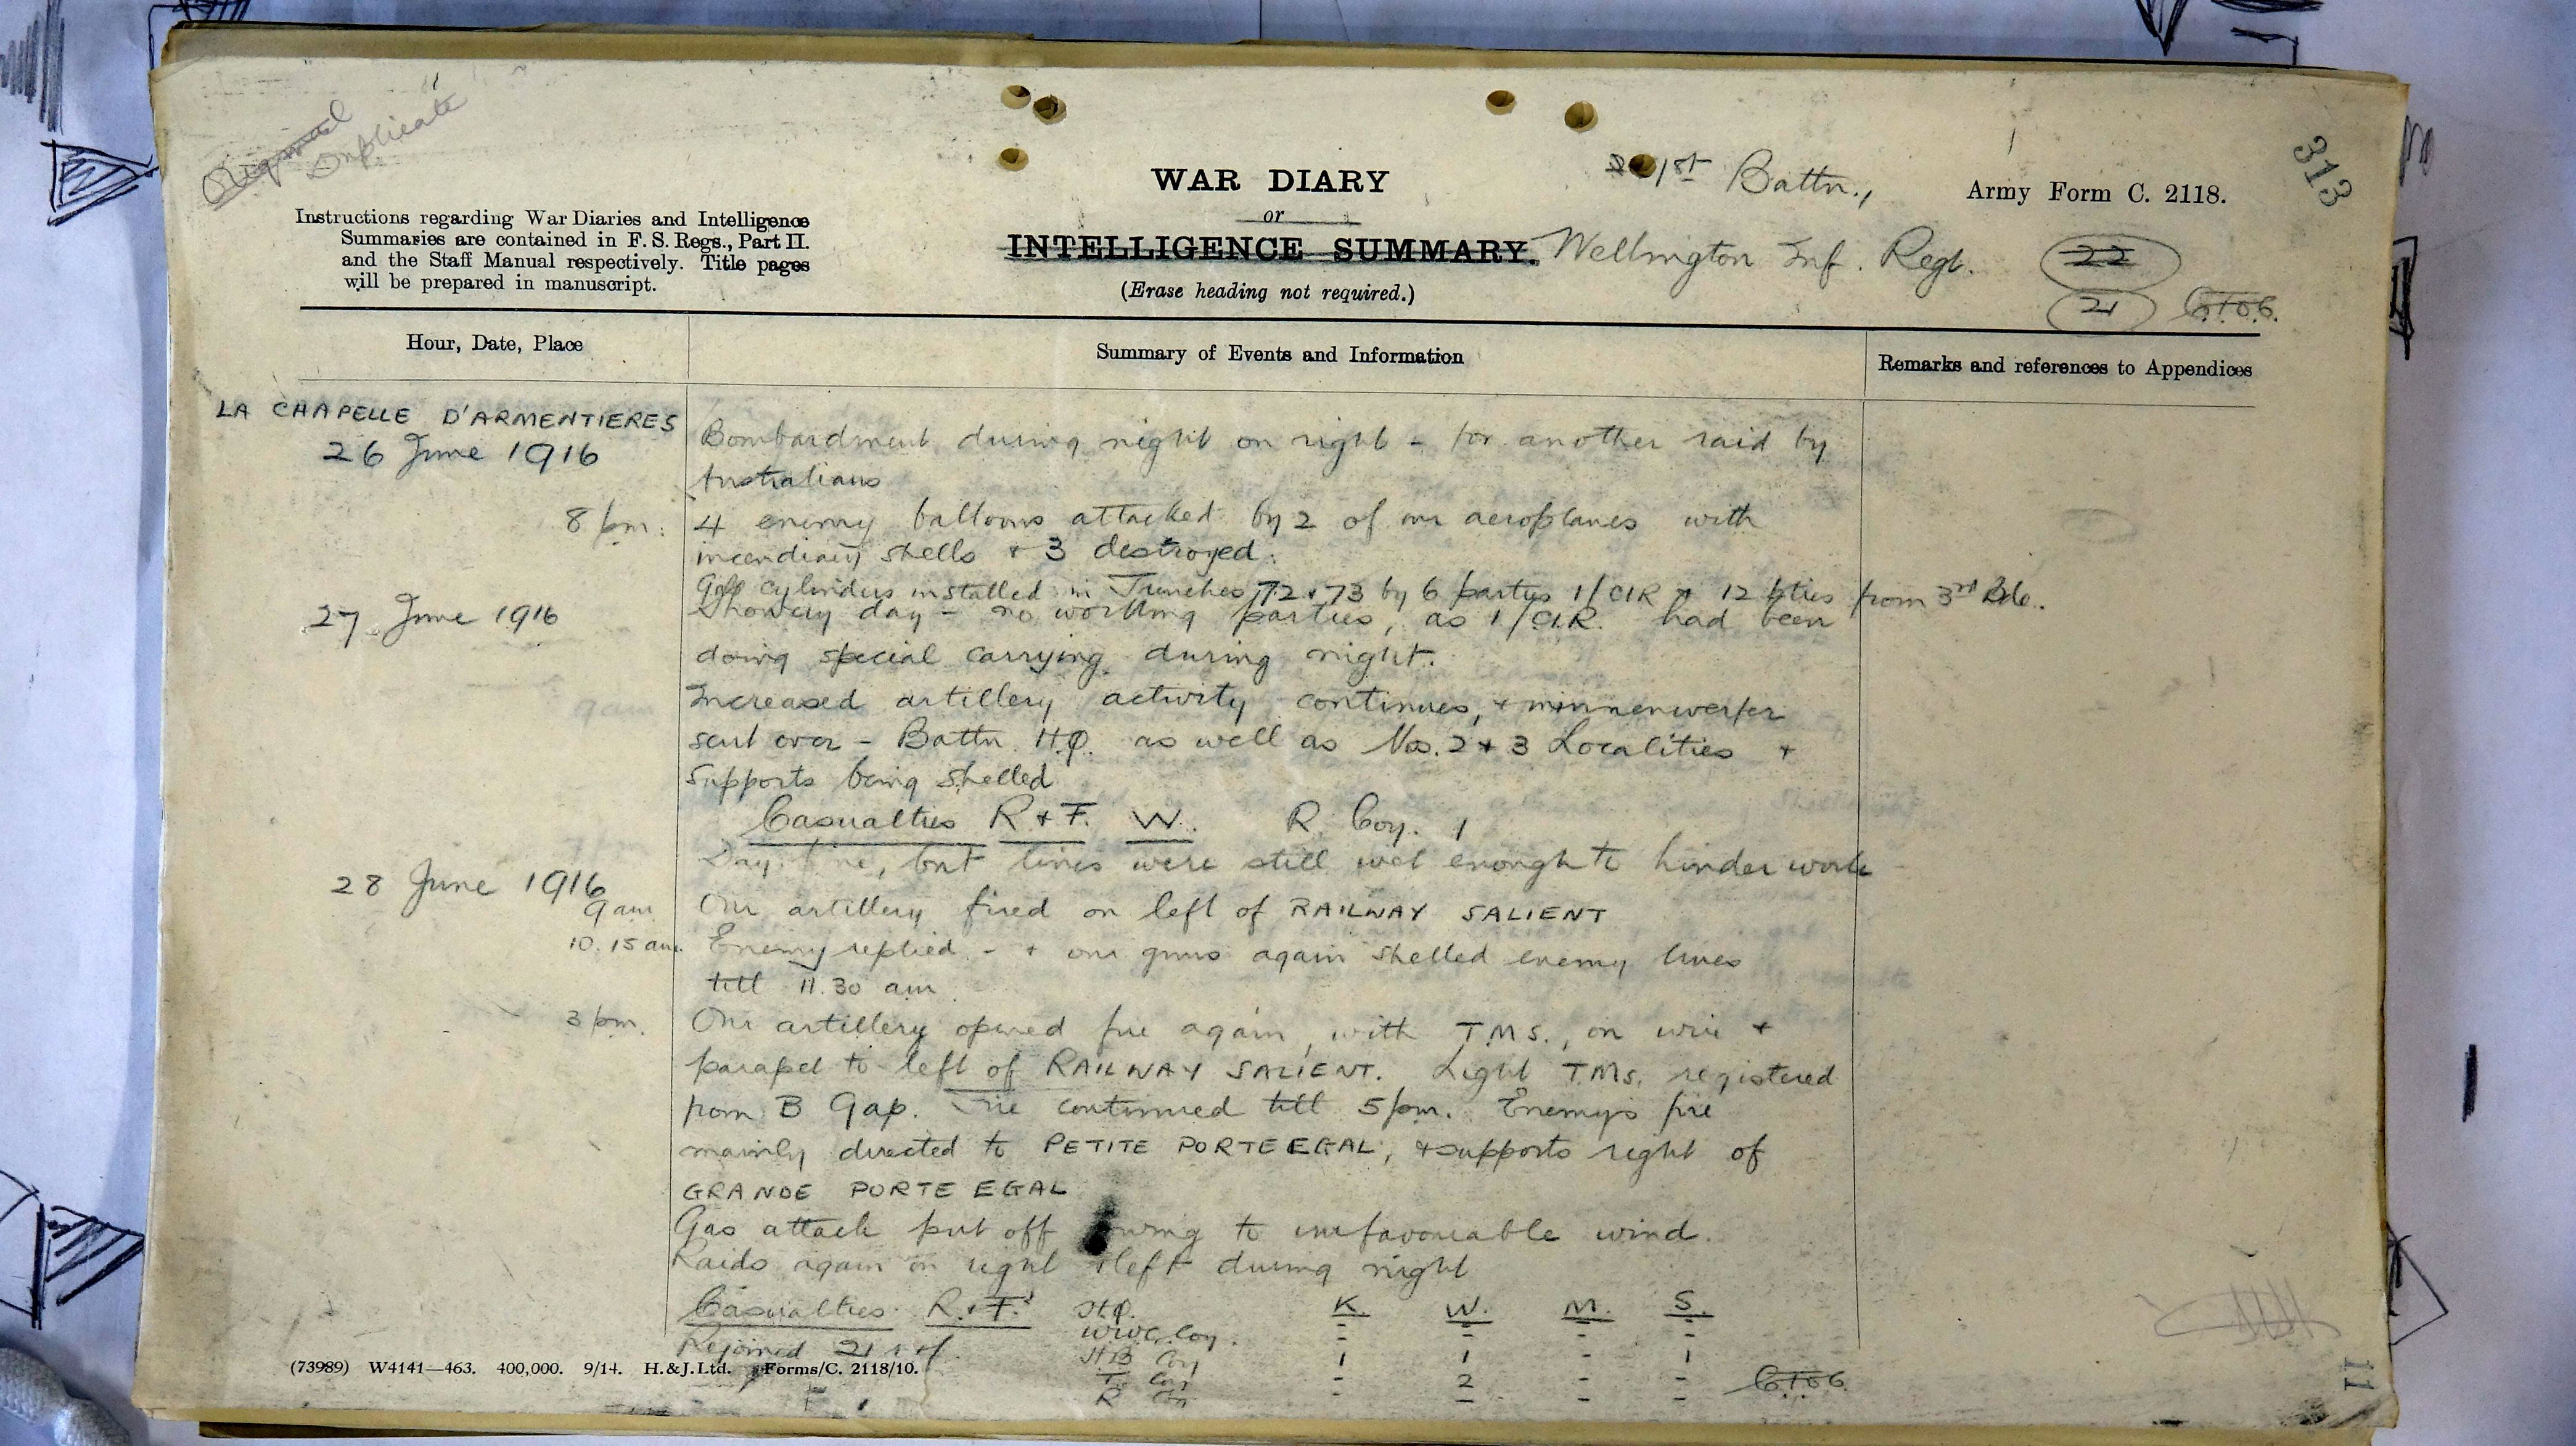 Original
Duplicate
313
Instructions regarding War Diaries and Intelligence
Summaries are contained in F. S. Regs., Part II.
and the Staff Manual respectively. Title pages
will be prepared in manuscript.
WAR DIARY
or
INTELLIGENCE SUMMARY.
(Erase heading not required.)
1st Battn.,
Wellington Inf. Regt.
Army Form C. 2118.
22
21
Hour, Date, Place
Summary of Events and Information
Remarks and references to Appendices
LA CHAPELLE D'ARMENTIERES
26 June 1916
Bombardment during night on right - for another raid by
Australians
8 pm. 4 enemy balloons attacked by 2 of our aeroplanes with
incendiary shells + 3 destroyed.
Gas cylinders installed in Trenches 72 + 73 by 6 parties 1/CIR + 12 pties from 3rd Bde.
27 June 1916 Showery day - no working parties, as 1/CIR. had been
doing special carrying during night.
9am Increased artillery activity continues, + minnenwerfer
sent over - Battn. H.Q. as well as Nos. 2 + 3 Localities +
supports being shelled
Casualties R + F. W. R Coy. 1
28 June 1916 Day fine, but lines were still wet enough to hinder work
9 am Our artillery fired on left of RAILWAY SALIENT
10.15 am. Enemy replied - + our guns again shelled enemy lines
till 11.30 am
3 pm. Our artillery opened fire again, with T.M.S., on wire +
parapet to left of RAILWAY SALIENT. Light T.Ms. registered
from B Gap. Fire continued till 5 pm. Enemy's fire
mainly directed to PETITE PORTE EGAL, + supports right of
GRANDE PORTE EGAL
Gas attack put off owing to unfavourable wind.
Raids again on right + left during night
Casualties R. + F. H.Q. K. W. M. S.
W.W.C. Coy. - - - -
Rejoined 21 r + f. H.B Coy 1 1 - 1
T. Coy - 2 - -
R Coy - - - -
(73989) W4141—463. 400,000. 9/14. H. & J. Ltd. Forms/C. 2118/10.
11